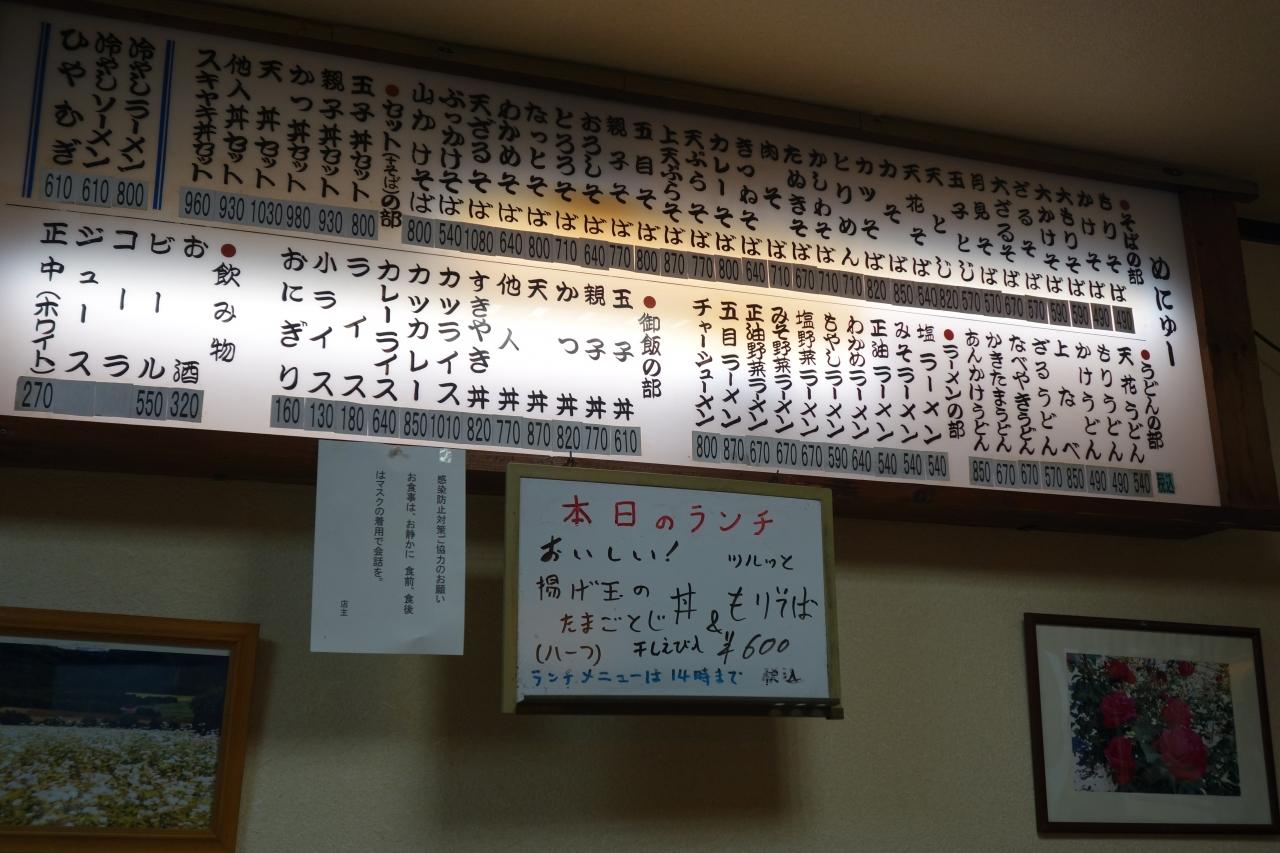 めにゅー
●そばの部
もりそば 490
かけそば 490
大もりそば 590
大かけそば 590
ざるそば 570
大ざるそば 670
月見そば 570
玉子とじ 570
天とじ 820
天花そば 540
力そば 850
カツそば 820
とりめん 710
かしわそば 710
たぬきそば 670
肉そば 710
きつねそば 640
カレーそば 800
天ぷらそば 770
上天ぷらそば 870
五目そば 800
親子そば 770
おろしそば 640
とろろそば 710
なっとそば 800
わかめそば 640
天ざるそば 1080
ぶっかけそば 540
山かけそば 800
●セット(+そば)の部
玉子丼セット 800
親子丼セット 930
かつ丼セット 980
天丼セット 1030
他人丼セット 930
スキヤキ丼セット 960
冷やしラーメン 800
冷やしソーメン 610
ひやむぎ 610
●うどんの部
税込
天花うどん 540
もりうどん 490
かけうどん 490
上なべ 850
ざるうどん 570
なべやきうどん 670
かきたまうどん 670
あんかけうどん 850
●ラーメンの部
塩ラーメン 540
みそラーメン 540
正油ラーメン 540
わかめラーメン 640
もやしラーメン 590
塩野菜ラーメン 670
みそ野菜ラーメン 670
正油野菜ラーメン 670
五目ラーメン 870
チャーシューメン 800
●御飯の部
玉子丼 610
親子丼 770
かつ丼 820
天丼 870
他人丼 770
すきやき丼 820
カツライス 1010
カツカレー 850
カレーライス 640
ライス 180
小ライス 130
おにぎり 160
●飲み物
お酒 320
ビール 550
コーラ
ジュース
正中(ホワイト) 270
感染防止対策ご協力のお願い
お食事は、お静かに 食前、食後
はマスクの着用で会話を。
店主
本日のランチ
おいしい! ツルッと
揚げ玉の
たまごとじ丼&もりそば
(ハーフ) 干しえび入 ¥600
ランチメニューは14時まで 税込